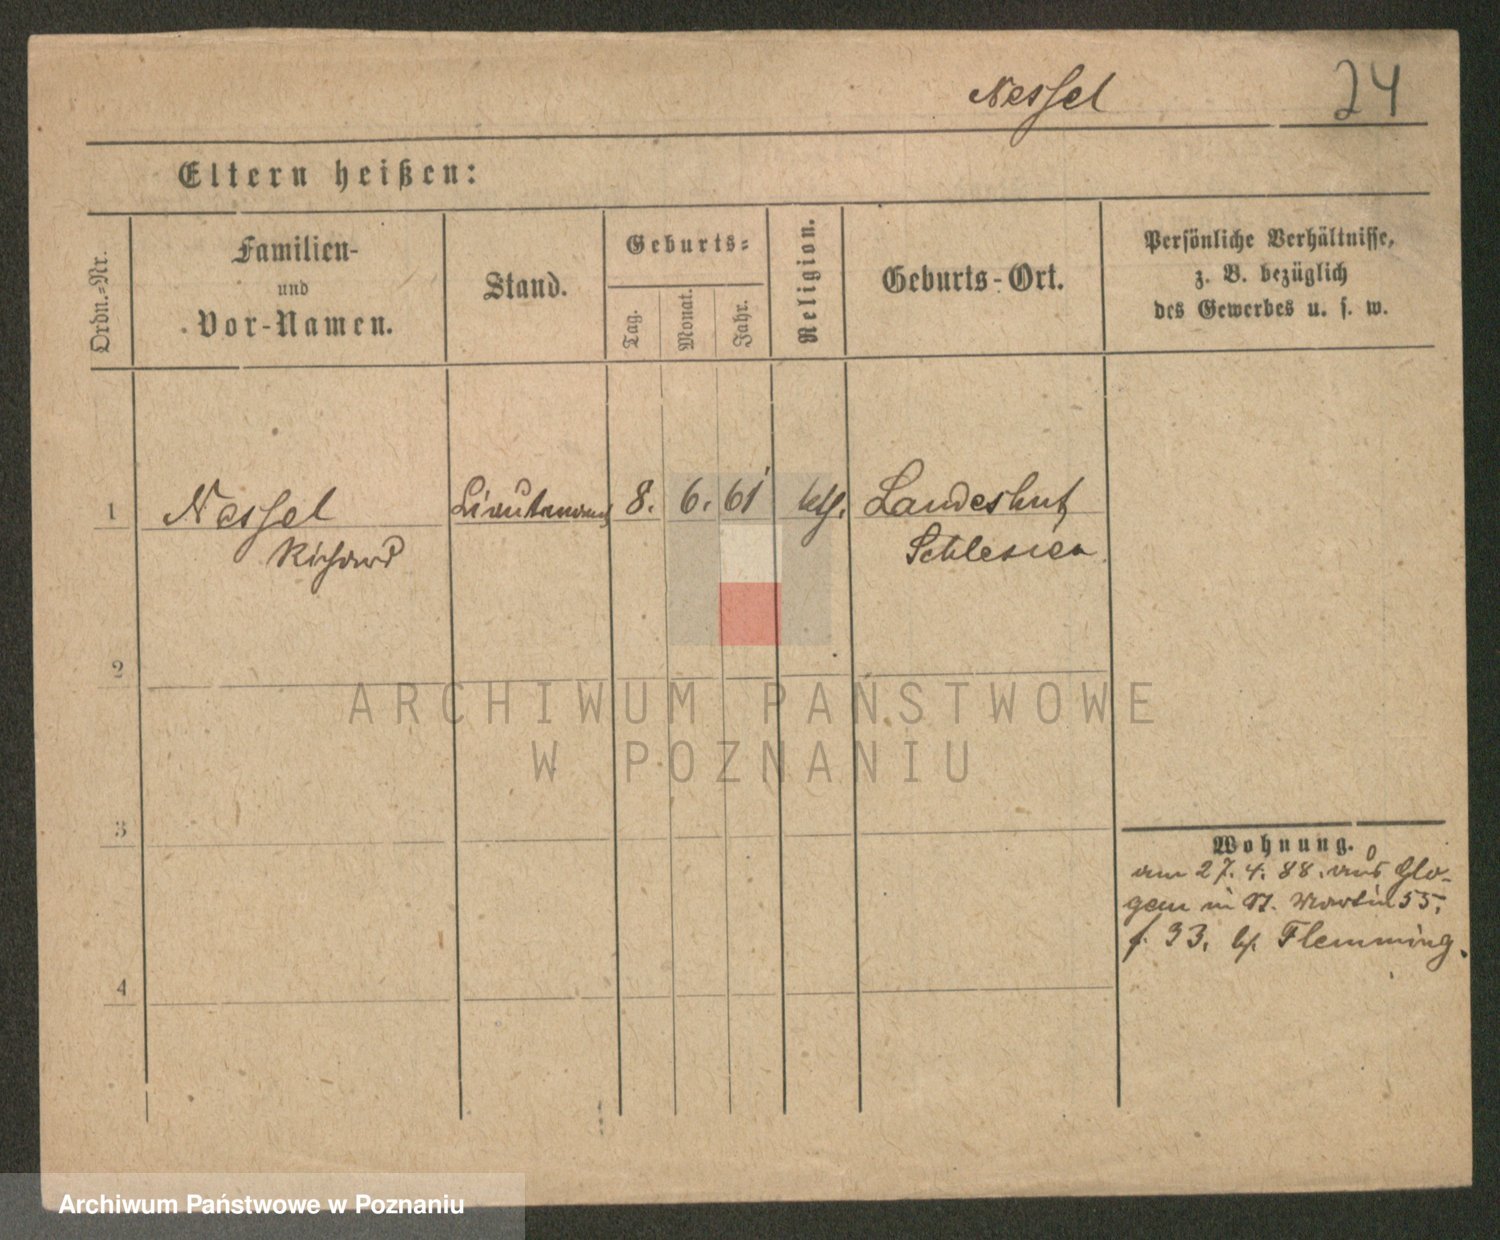 Nessel
24
Eltern heißen:
Ordn.-Nr.
Familien-
und
Vor-Namen.
Stand.
Geburts-
Tag.
Monat.
Jahr.
Religion.
Geburts-Ort.
Persönliche Verhältnisse,
z. B. bezüglich
des Gewerbes u. s. w.
1 Nessel Lieutenant 8. 6. 61 kth. Landeshut
Richard Schlesien
2
ARCHIWUM PAŃSTWOWE
W POZNANIU
3
Wohnung.
am 27. 4. 88. aus Glo-
gau in St. Martin 55,
f. 33, bj. Flemming.
4
Archiwum Państwowe w Poznaniu